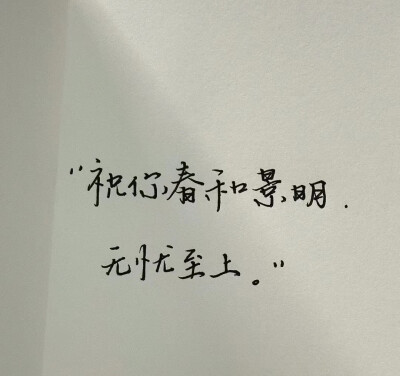 "祝你春和景明.
无忧至上。"